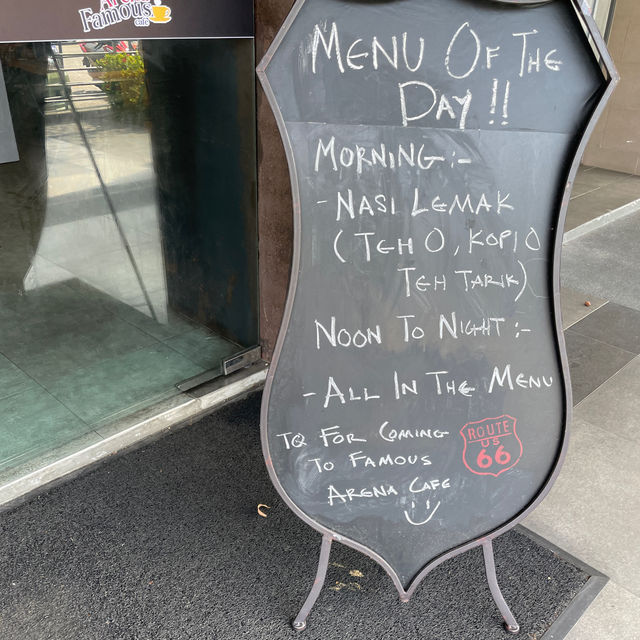 Famous
cafe
MENU OF THE
DAY !!
MORNING :-
- NASI LEMAK
(TEH O, KOPI O
TEH TARIK)
NOON TO NIGHT :-
- ALL IN THE MENU
TQ FOR COMING
TO FAMOUS
ARENA CAFE
ROUTE
US
66